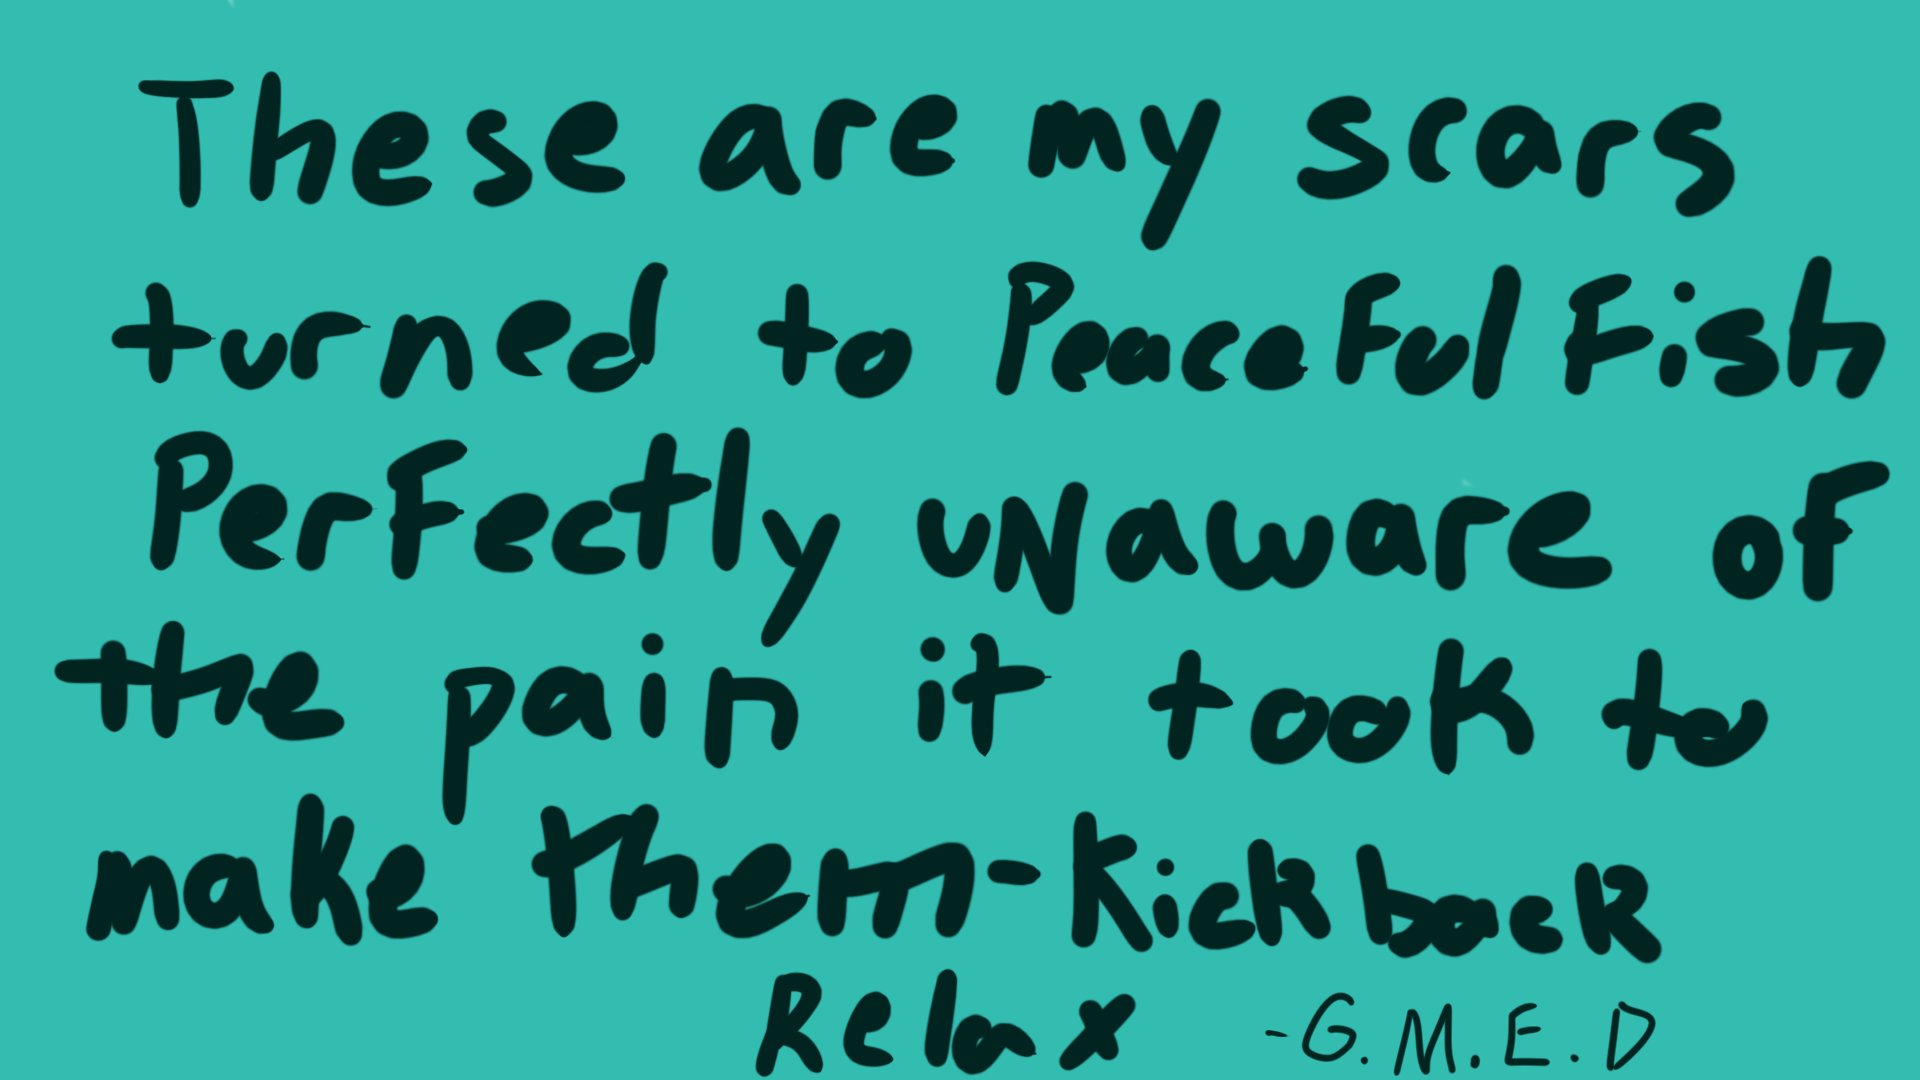 These are my scars
turned to Peaceful Fish
Perfectly unaware of
the pain it took to
make them-Kick back
Relax -G.M.E.D